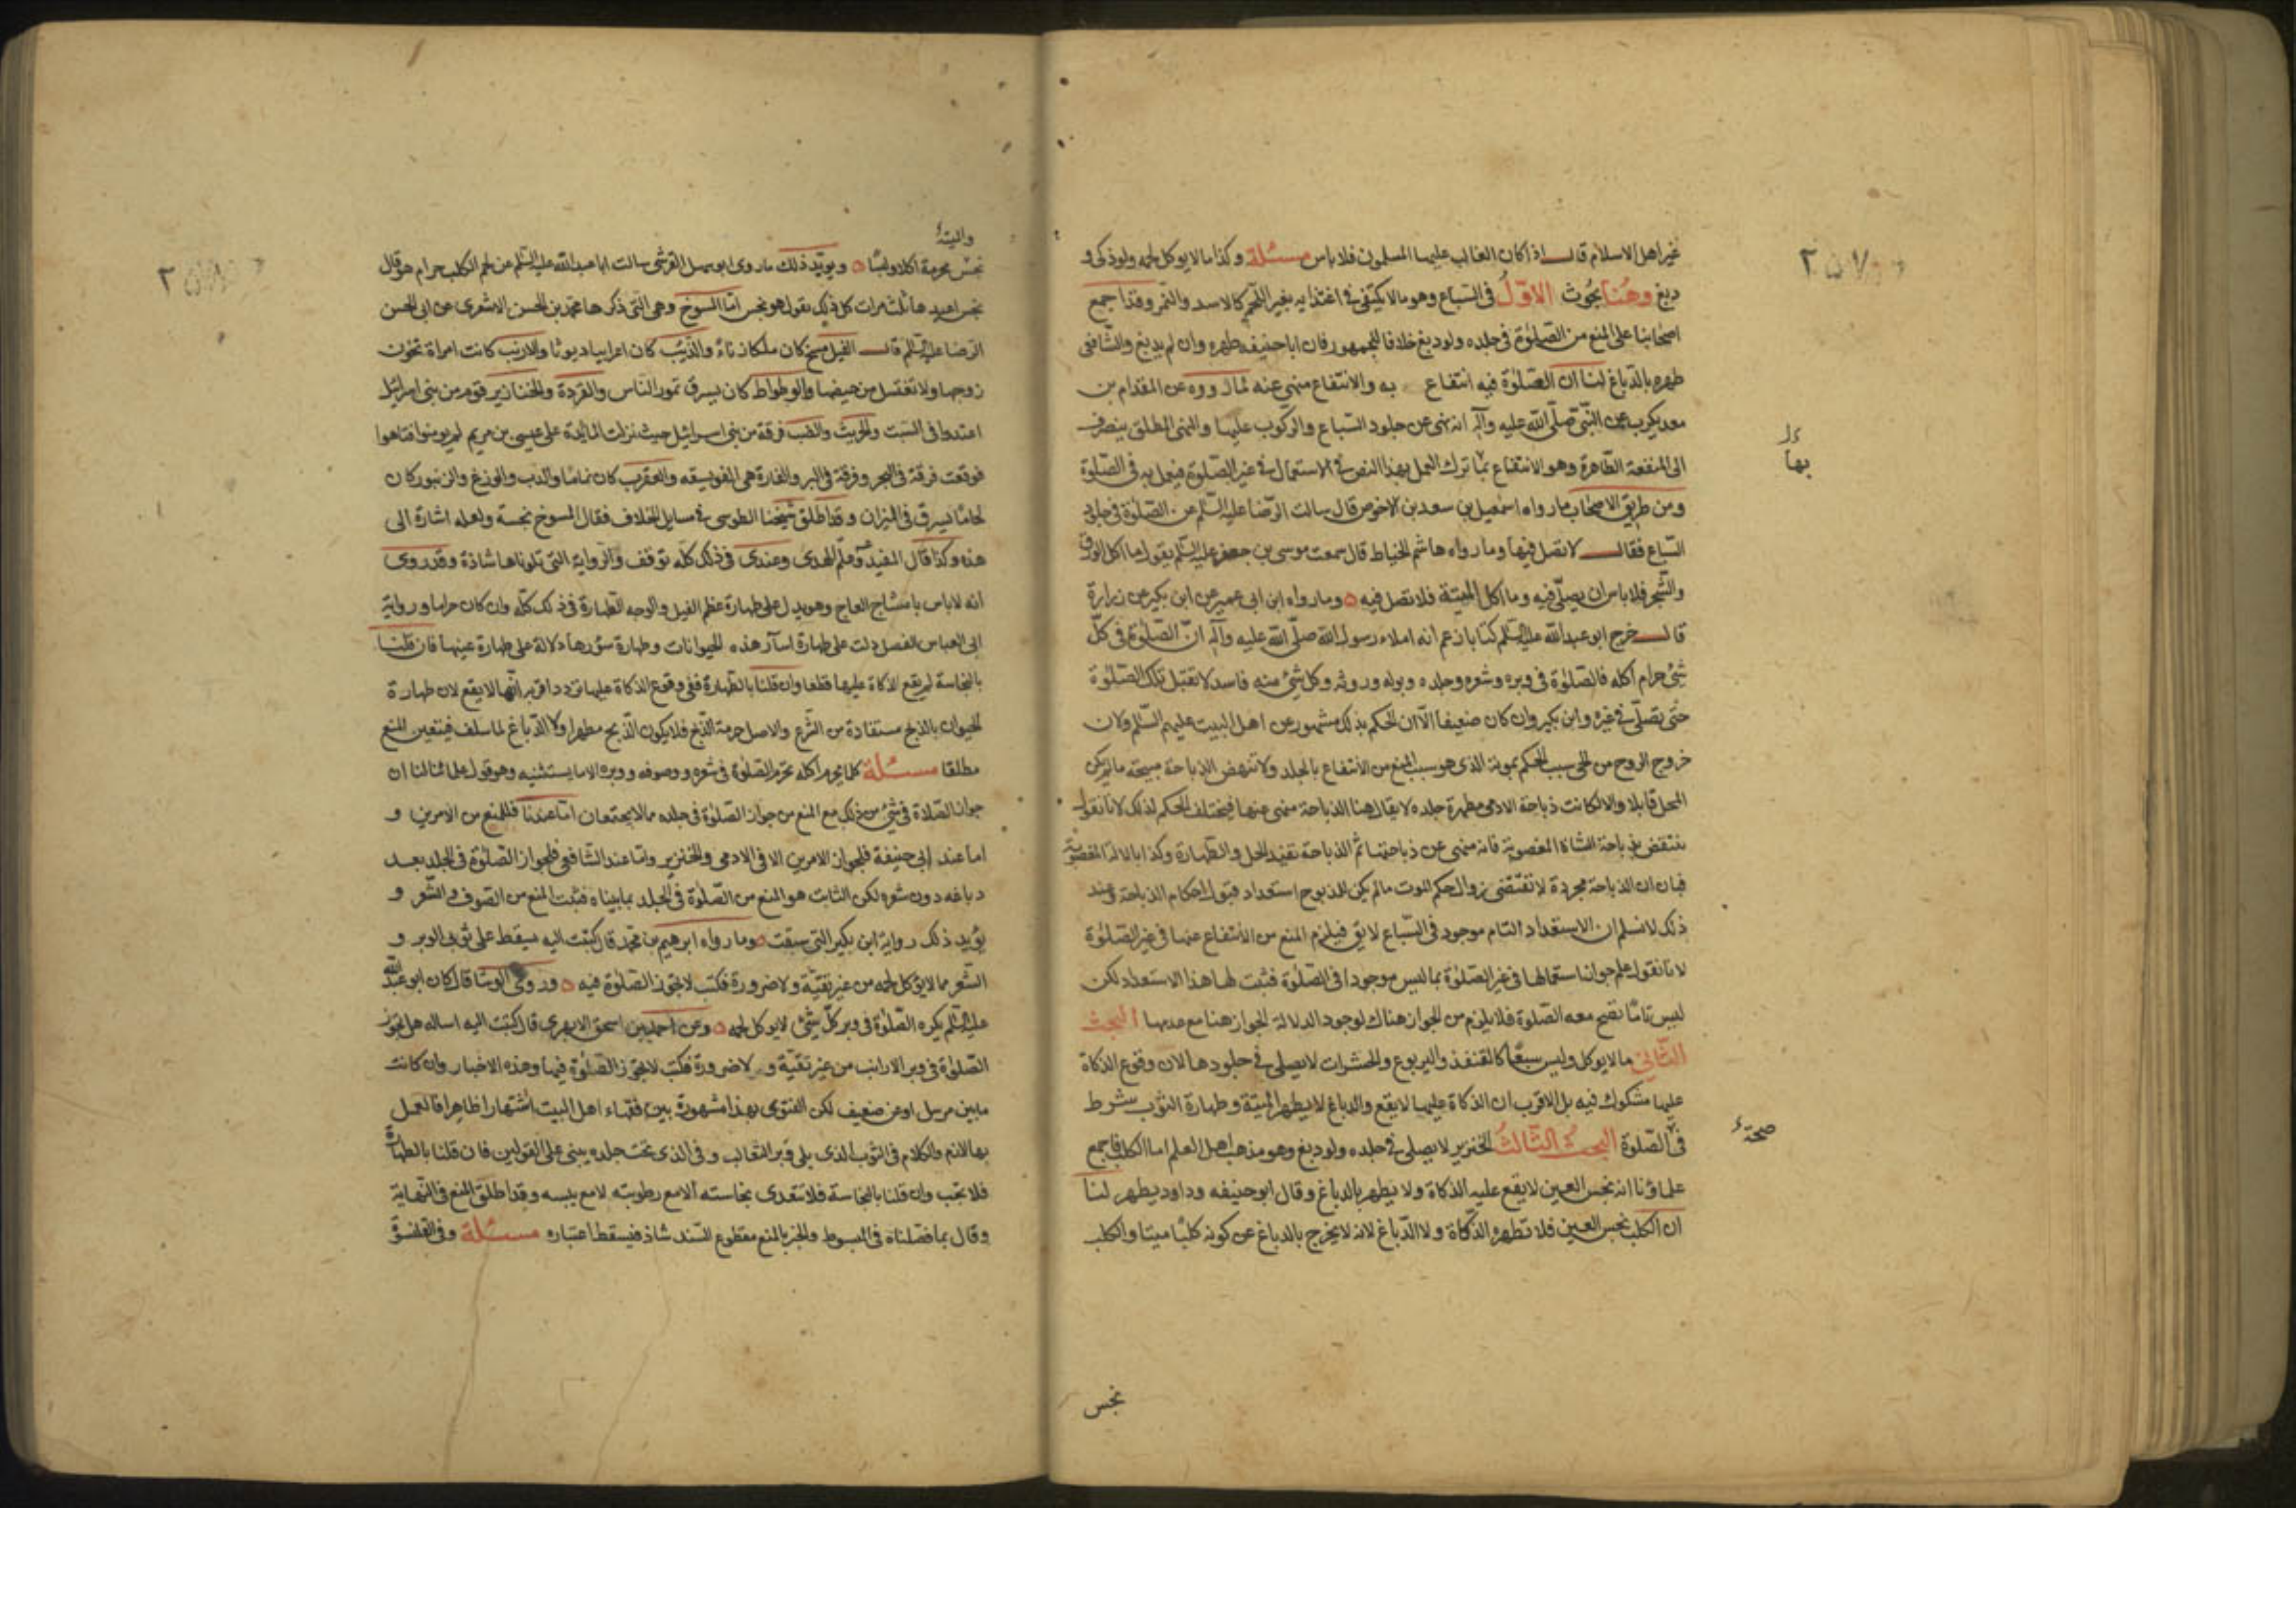 غير اهل الاسلام قال اذا كان الغالب عليها المسلمون فلا باس مسئلة وكذا ما لا يوكل لحمه ولو ذكى و
دبغ وهنا بحوث الاول فى السباع وهو ما لا يكتفى فى اغتذايه بغير اللحم كالاسد والنمر وقد اجمع
اصحابنا على المنع من الصلوة فى جلده ولو دبغ خلافا للجمهور فان ابا حنيفه طهره وان لم يدبغ والشافى
طهره بالدباغ لنا ان الصلوة فيه انتفاع به والانتفاع منهى عنه لما رووه عن المقدام بن
معد يكرب عن النبى صلى الله عليه وآله انه نهى عن جلود السباع والركوب عليها والنهى المطلق ينصرف
الى المنفعة الظاهرة وهو الانتفاع بها ترك العمل بهذا النص فى الاستعمال فى غير الصلوة فيعمل به فى الصلوة
ومن طريق الاصحاب ما رواه اسمعيل بن سعد بن الاخوص قال سالت الرضا عليه السلم عن الصلوة فى جلود
السباع فقال لا تصل فيها وما رواه هاشم الخياط قال سمعت موسى بن جعفر عليه السلم يقول ما اكل الورق
والشجر فلا باس ان يصلى فيه وما اكل الميتة فلا تصل فيه ٥ وما رواه ابن ابى عمير عن ابن بكير عن زرارة
قال خرج ابو عبد الله عليه السلم كتابا زعم انه املاء رسول الله صلى الله عليه وآله ان الصلوة فى كل
شئ حرام اكله فالصلوة فى وبره وشعره وجلده وبوله وروثه وكل شئ منه فاسد لا تقبل تلك الصلوة
حتى تصلى فى غيره وابن بكير وان كان ضعيفا الا ان الحكم بذلك مشهور عن اهل البيت عليهم السلم ولان
خروج الروح من الحى سبب الحكم بموته الذى هو سبب المنع من الانتفاع بالجلد ولا تنهض الذباحة مبيحة ما لم يكن
المحل قابلا والا لكانت ذباحة الادمى مطهرة جلده لا يقال هنا الذباحة منهى عنها فيختلف الحكم لذلك لانا نقول
ينتقض بذباحة الشاة المغصوبة فانه منهى عن ذباحتها ثم الذباحة تفيد الحل والطهارة وكذا بالالة المغصوبة
فبان ان الذباحة مجردة لا تقتضى زوال حكم الموت ما لم يكن للمذبوح استعداد قبول احكام الذباحة وعند
ذلك لا نسلم ان الاستعداد التام موجود فى السباع لا يق فيلزم المنع من الانتفاع عنها فى غير الصلوة
لانا نقول علم جواز استعمالها فى غير الصلوة بما ليس موجودا فى الصلوة فثبت لها هذا الاستعداد لكن
ليس تاما تصح معه الصلوة فلا يلزم من الجواز هناك لوجود الدلالة الجواز هنا مع عدمها البحث
الثانى ما لا يوكل وليس سبعا كالقنفذ واليربوع والحشرات لا يصلى فى جلودها لان وقوع الذكاة
عليها مشكوك فيه بل الاقرب ان الذكاة عليها لا يقع والدباغ لا يطهر الميتة وطهارة الثوب شرط
فى الصلوة البحث الثالث الخنزير لا يصلى فى جلده ولو دبغ وهو مذهب اهل العلم اما الكلب فاجمع
علماؤنا انه نجس العين لا يقع عليه الذكاة ولا يطهر بالدباغ وقال ابو حنيفه وداود يطهر لنا
ان الكلب نجس العين فلا تطهره الذكاة ولا الدباغ لانه لا يخرج بالدباغ عن كونه كلبا ميتا والكلب
بها
صحة
نجس
والميتة
نجس محرمة اكلا ولبسا ٥ ويؤيد ذلك ما روى ابو سهل القرشى سالت ابا عبد الله عليه السلم عن لحم الكلب حرام هو قال
نجس اعيدها ثلث مرات كل ذلك يقول هو نجس اما المسوخ وهى التى ذكرها محمد بن الحسن الاشعرى عن ابى الحسن
الرضا عليه السلم قال الفيل مسخ كان ملكا زناء والذئب كان اعرابيا ديوثا والارنب كانت امراة تخون
زوجها ولا تغتسل من حيضها والوطواط كان يسرق تمور الناس والقردة والخنازير قوم من بنى اسرائيل
اعتدوا فى السبت والجريث والضب فرقة من بنى اسرائيل حيث نزلت المائدة على عيسى بن مريم لم يومنوا فتاهوا
فوقعت فرقة فى البحر وفرقة فى البر والفارة هى الفويسقه والعقرب كان نماما والدب والوزغ والزنبور كان
لحاما يسرق فى الميزان وقد اطلق شيخنا الطوسى فى مسايل الخلاف فقال المسوخ نجسة ولعله اشارة الى
هذه وكذا قال المفيد وعلم الهدى وعندى فى ذلك كله توقف والرواية التى تلوناها شاذة وقد روى
انه لا باس بامتشاط العاج وهو يدل على طهارة عظم الفيل والوجه الطهارة فى ذلك كله وان كان حراما ورواية
ابى العباس الفضل دلت على طهارة اسآر هذه الحيوانات وطهارة سؤرها دلالة على طهارة عينها فان قلنا
بالنجاسة لم يقع الذكاة عليها قطعا وان قلنا بالطهارة ففى وقوع الذكاة عليها تردد اقربه انها لا يقع لان طهارة
الحيوان بالذبح مستفادة من الشرع والاصل حرمة الذبح فلا يكون الذبح مطهرا ولا الدباغ لما سلف فيتعين المنع
مطلقا مسئلة كلما يحرم اكله تحرم الصلوة فى شعره وصوفه ووبره الا ما يستثنيه وهو قول علمائنا لنا ان
جواز الصلاة فى شئ من ذلك مع المنع من جواز الصلوة فى جلده مما لا يجتمعان اما عندنا فللمنع من الامرين و
اما عند ابى حنيفة فلجواز الامرين الا فى الادمى والخنزير واما عند الشافعى فلجواز الصلوة فى الجلد بعد
دباغه دون شعره لكن الثابت هو المنع من الصلوة فى الجلد بما بيناه فثبت المنع من الصوف والشعر و
يؤيد ذلك رواية ابن بكير التى سبقت ٥ وما رواه ابرهيم بن محمد قال كتبت اليه يسقط على ثوبى الوبر و
الشعر مما لا يؤكل لحمه من غير تقية ولا ضرورة فكتب لا تجوز الصلوة فيه ٥ وروى الوشا قال كان ابو عبد الله
عليه السلم يكره الصلوة فى وبر كل شئ لا يوكل لحمه ٥ وعن احمد بن اسحق الابهرى قال كتبت اليه اساله هل تجوز
الصلوة فى وبر الارانب من غير تقية ولا ضرورة فكتب لا تجوز الصلوة فيها وهذه الاخبار وان كانت
ما بين مرسل او عن ضعيف لكن الفتوى بهذا مشهورة بين فقهاء اهل البيت اشتهارا ظاهرا فالعمل
بها لازم والكلام فى الثوب الذى يلى وبر الثعالب وفى الذى تحت جلده يبنى على القولين فان قلنا بالطهارة
فلا تجب وان قلنا بالنجاسة فلا تتعدى نجاسته الا مع رطوبته لا مع يبسه وقد اطلق المنع فى النهاية
وقال بما فصلناه فى المبسوط والخبر بالمنع مقطوع السند شاذ فيسقط اعتباره مسئلة وفى القلنسوة